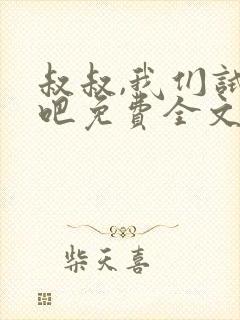 叔叔,我们试
吧免费全文
柴天喜